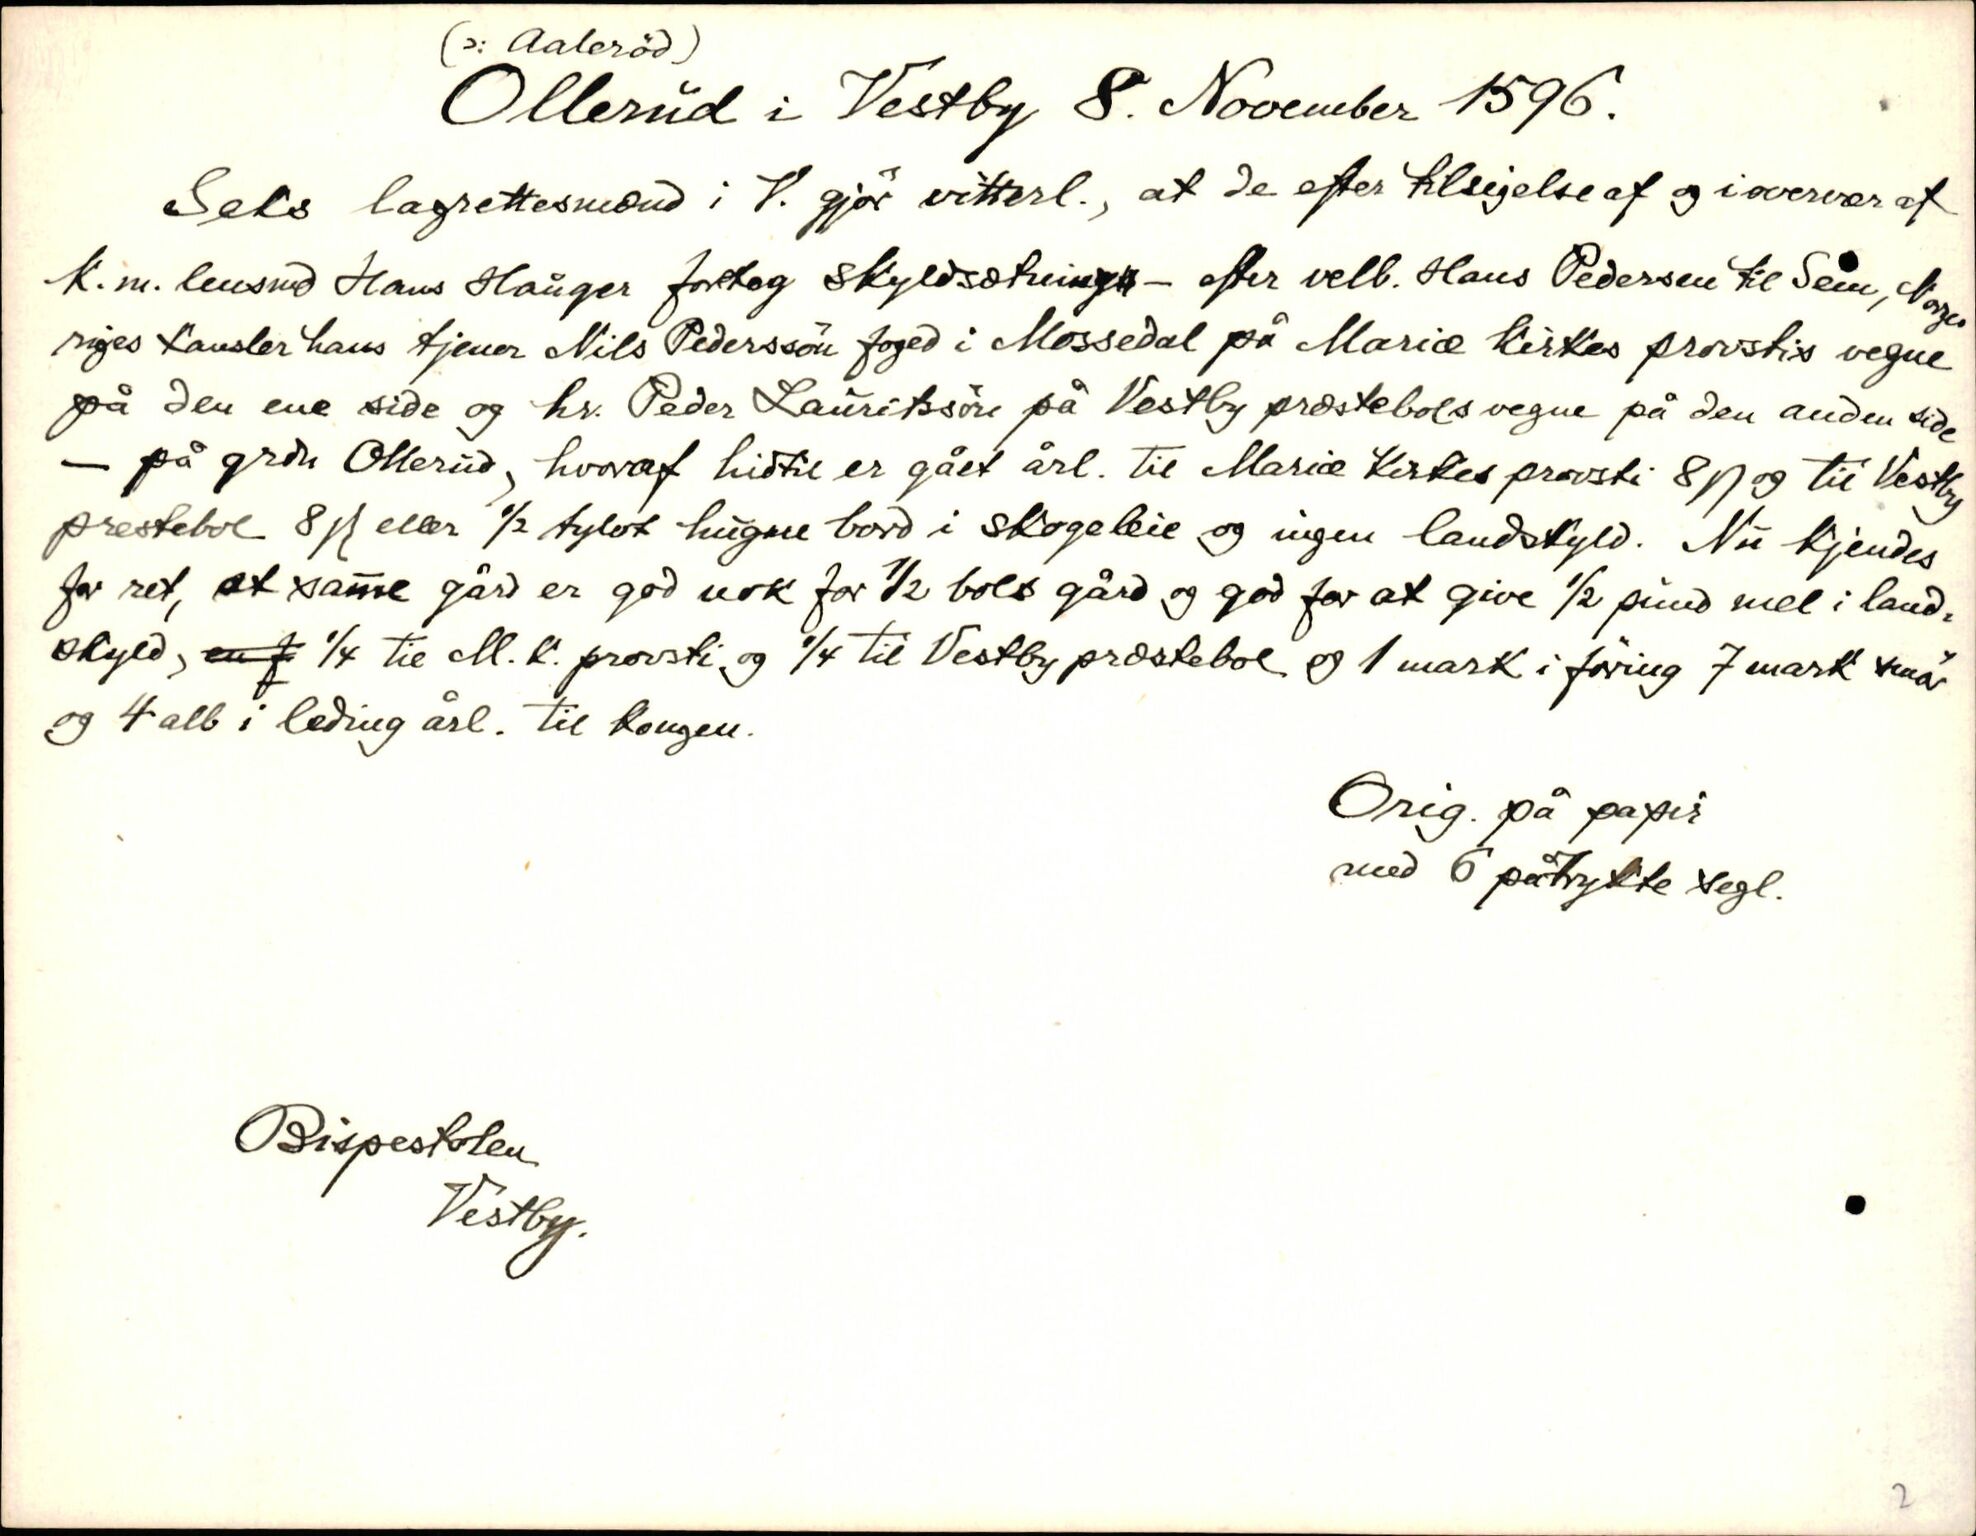 (ɔ: Aaleröd)
Ollerud i Vestby 8. November 1596.
Seks lagrettesmænd i V. gjör vitterl., at de efter tilsigelse af og i overvær af
k. m. lensmd Hans Hauger foretog skyldsætning — efter velb. Hans Pedersen til Sem, Norges
riges kansler hans tjener Nils Pederssön foged i Mossedal på Mariæ kirkes provstis vegne
på den ene side og hr. Peder Lauritssön på Vestby præstebols vegne på den anden side
— på grdn Ollerud, hvoraf hidtil er gået årl. til Mariæ kirkes provsti 8 β og til Vestby
prestebol 8 β eller 1/2 tylvt hugne bord i skogeleie og ingen landskyld. Nu kjendes
for ret, at sam̅e gård er god nok for 1/2 bols gård og god for at give 1/2 pund mel i land-
skyld, 1/4 til M. k. provsti og 1/4 til Vestby præstebol og 1 mark i föring 7 mark smör
og 4 alb i leding årl. til kongen.
Orig. på papir
med 6 påtrykte segl.
Bispestolen
Vestby.
2